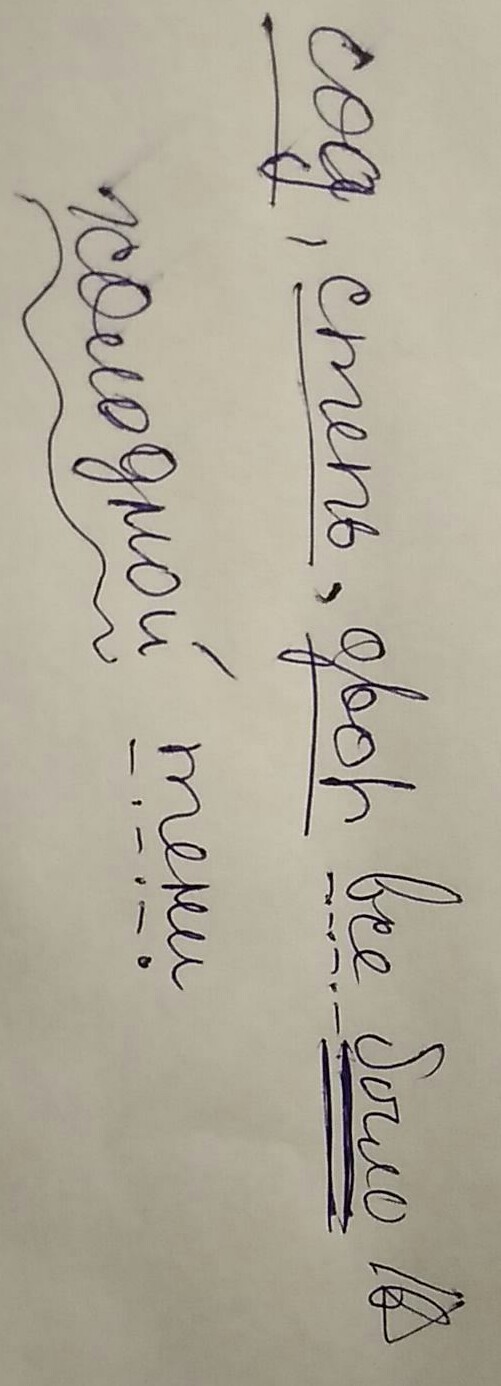 сад, степь, двор все было в
холодной тени